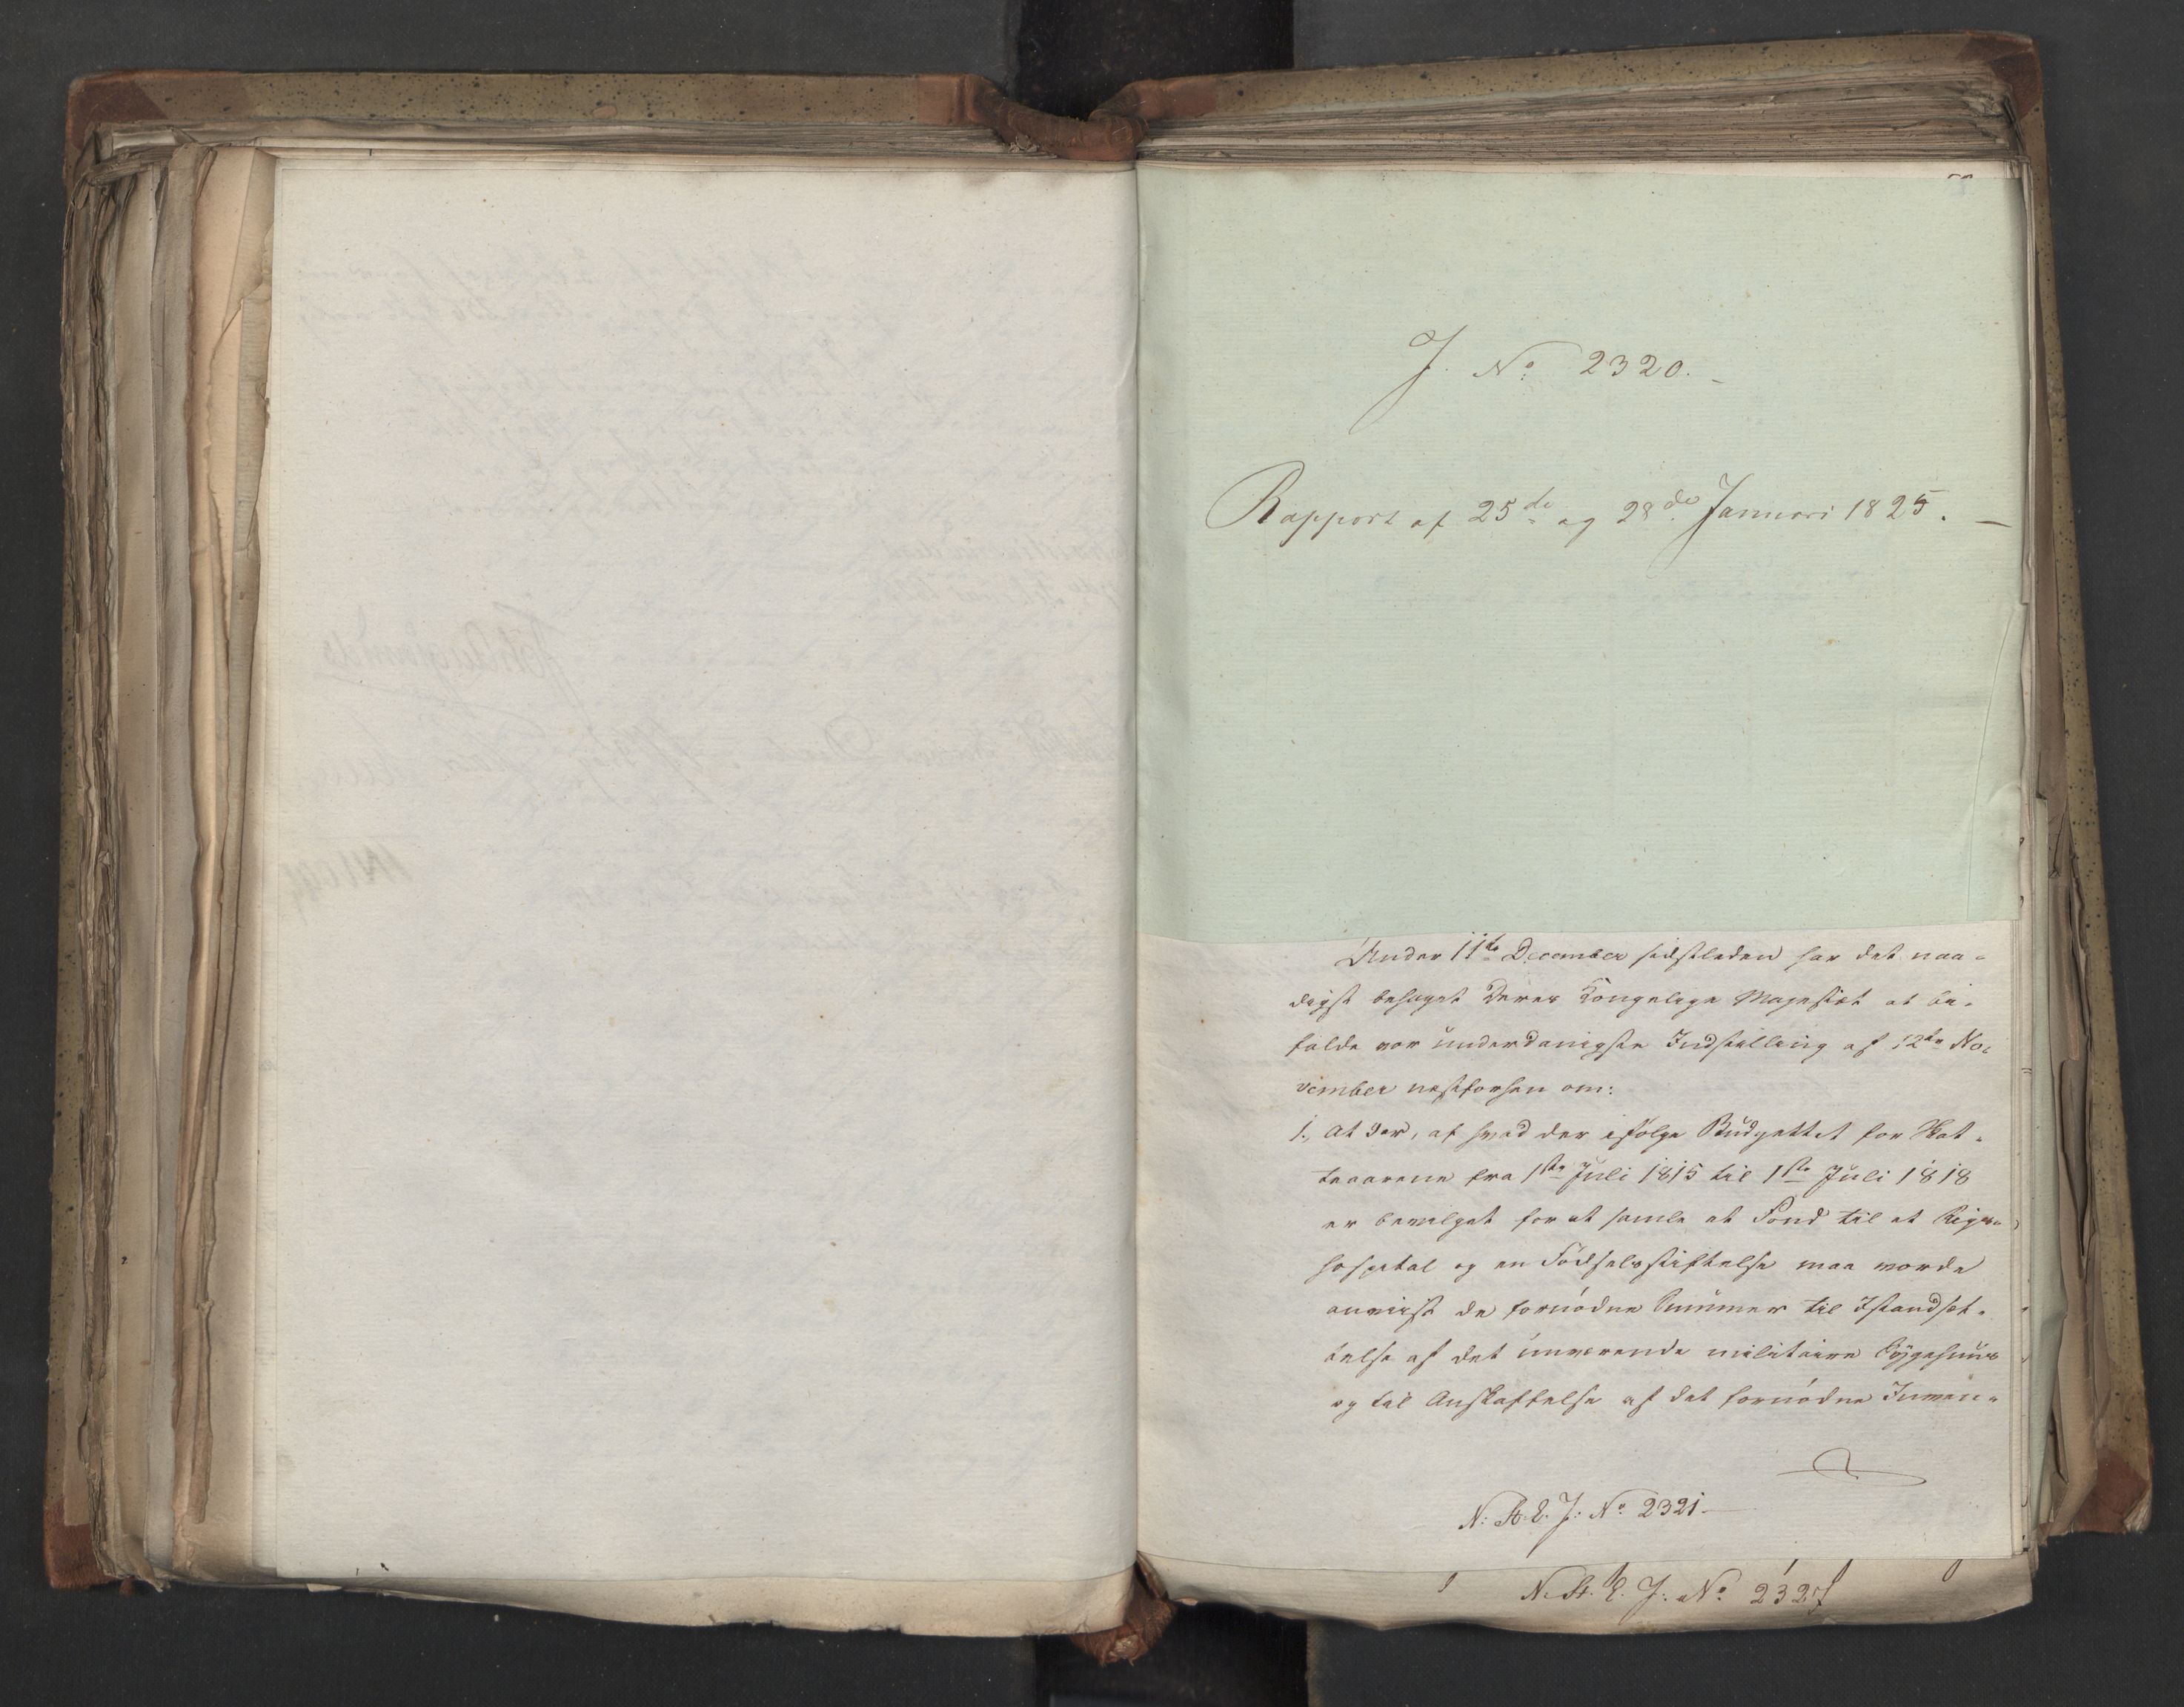 J. No 2320.
Rapport af 25de og 28de Januari 1825.
Under 11te December sidstleden har det naa-
digst behaget Deres Kongelige Majestæt at bi-
falde vor underdanigste Indstilling af 12te No-
vember næstforhen om:
1., At der, af hvad der ifølge Budgettet for Skat-
teaarene fra 1ste Juli 1815 til 1ste Juli 1818
er bevilget for at samle et Fond til et Rigs-
hospital og en Födselsstiftelse maa vorde
anviist de fornödne Summer til Istandsæt-
telse af det nuværende militaire Sygehuus
og til Anskaffelse af det fornödne Inven-
N: St. E. J: No 2321.
N. St. E. J: No